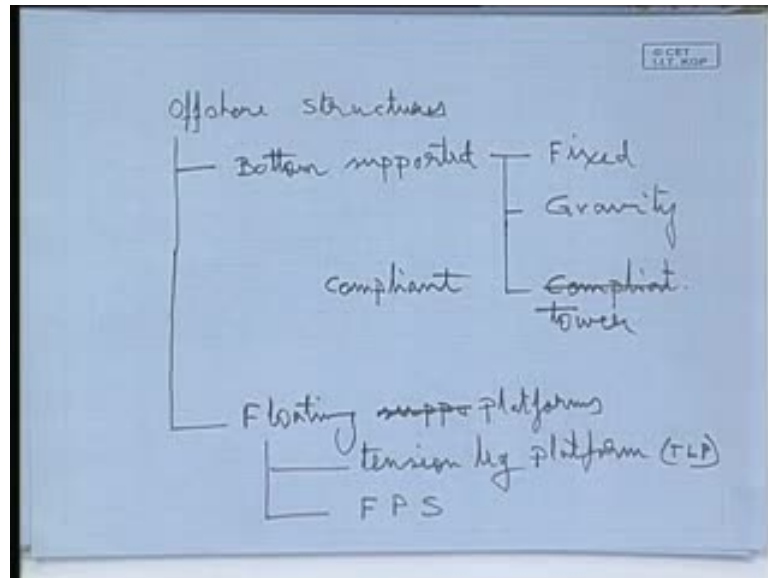 © CET
I.I.T. KGP
Offshore structures
Bottom supported Fixed
Gravity
compliant Compliant.
tower
Floating suppo platforms
tension leg platform (TLP)
F P S